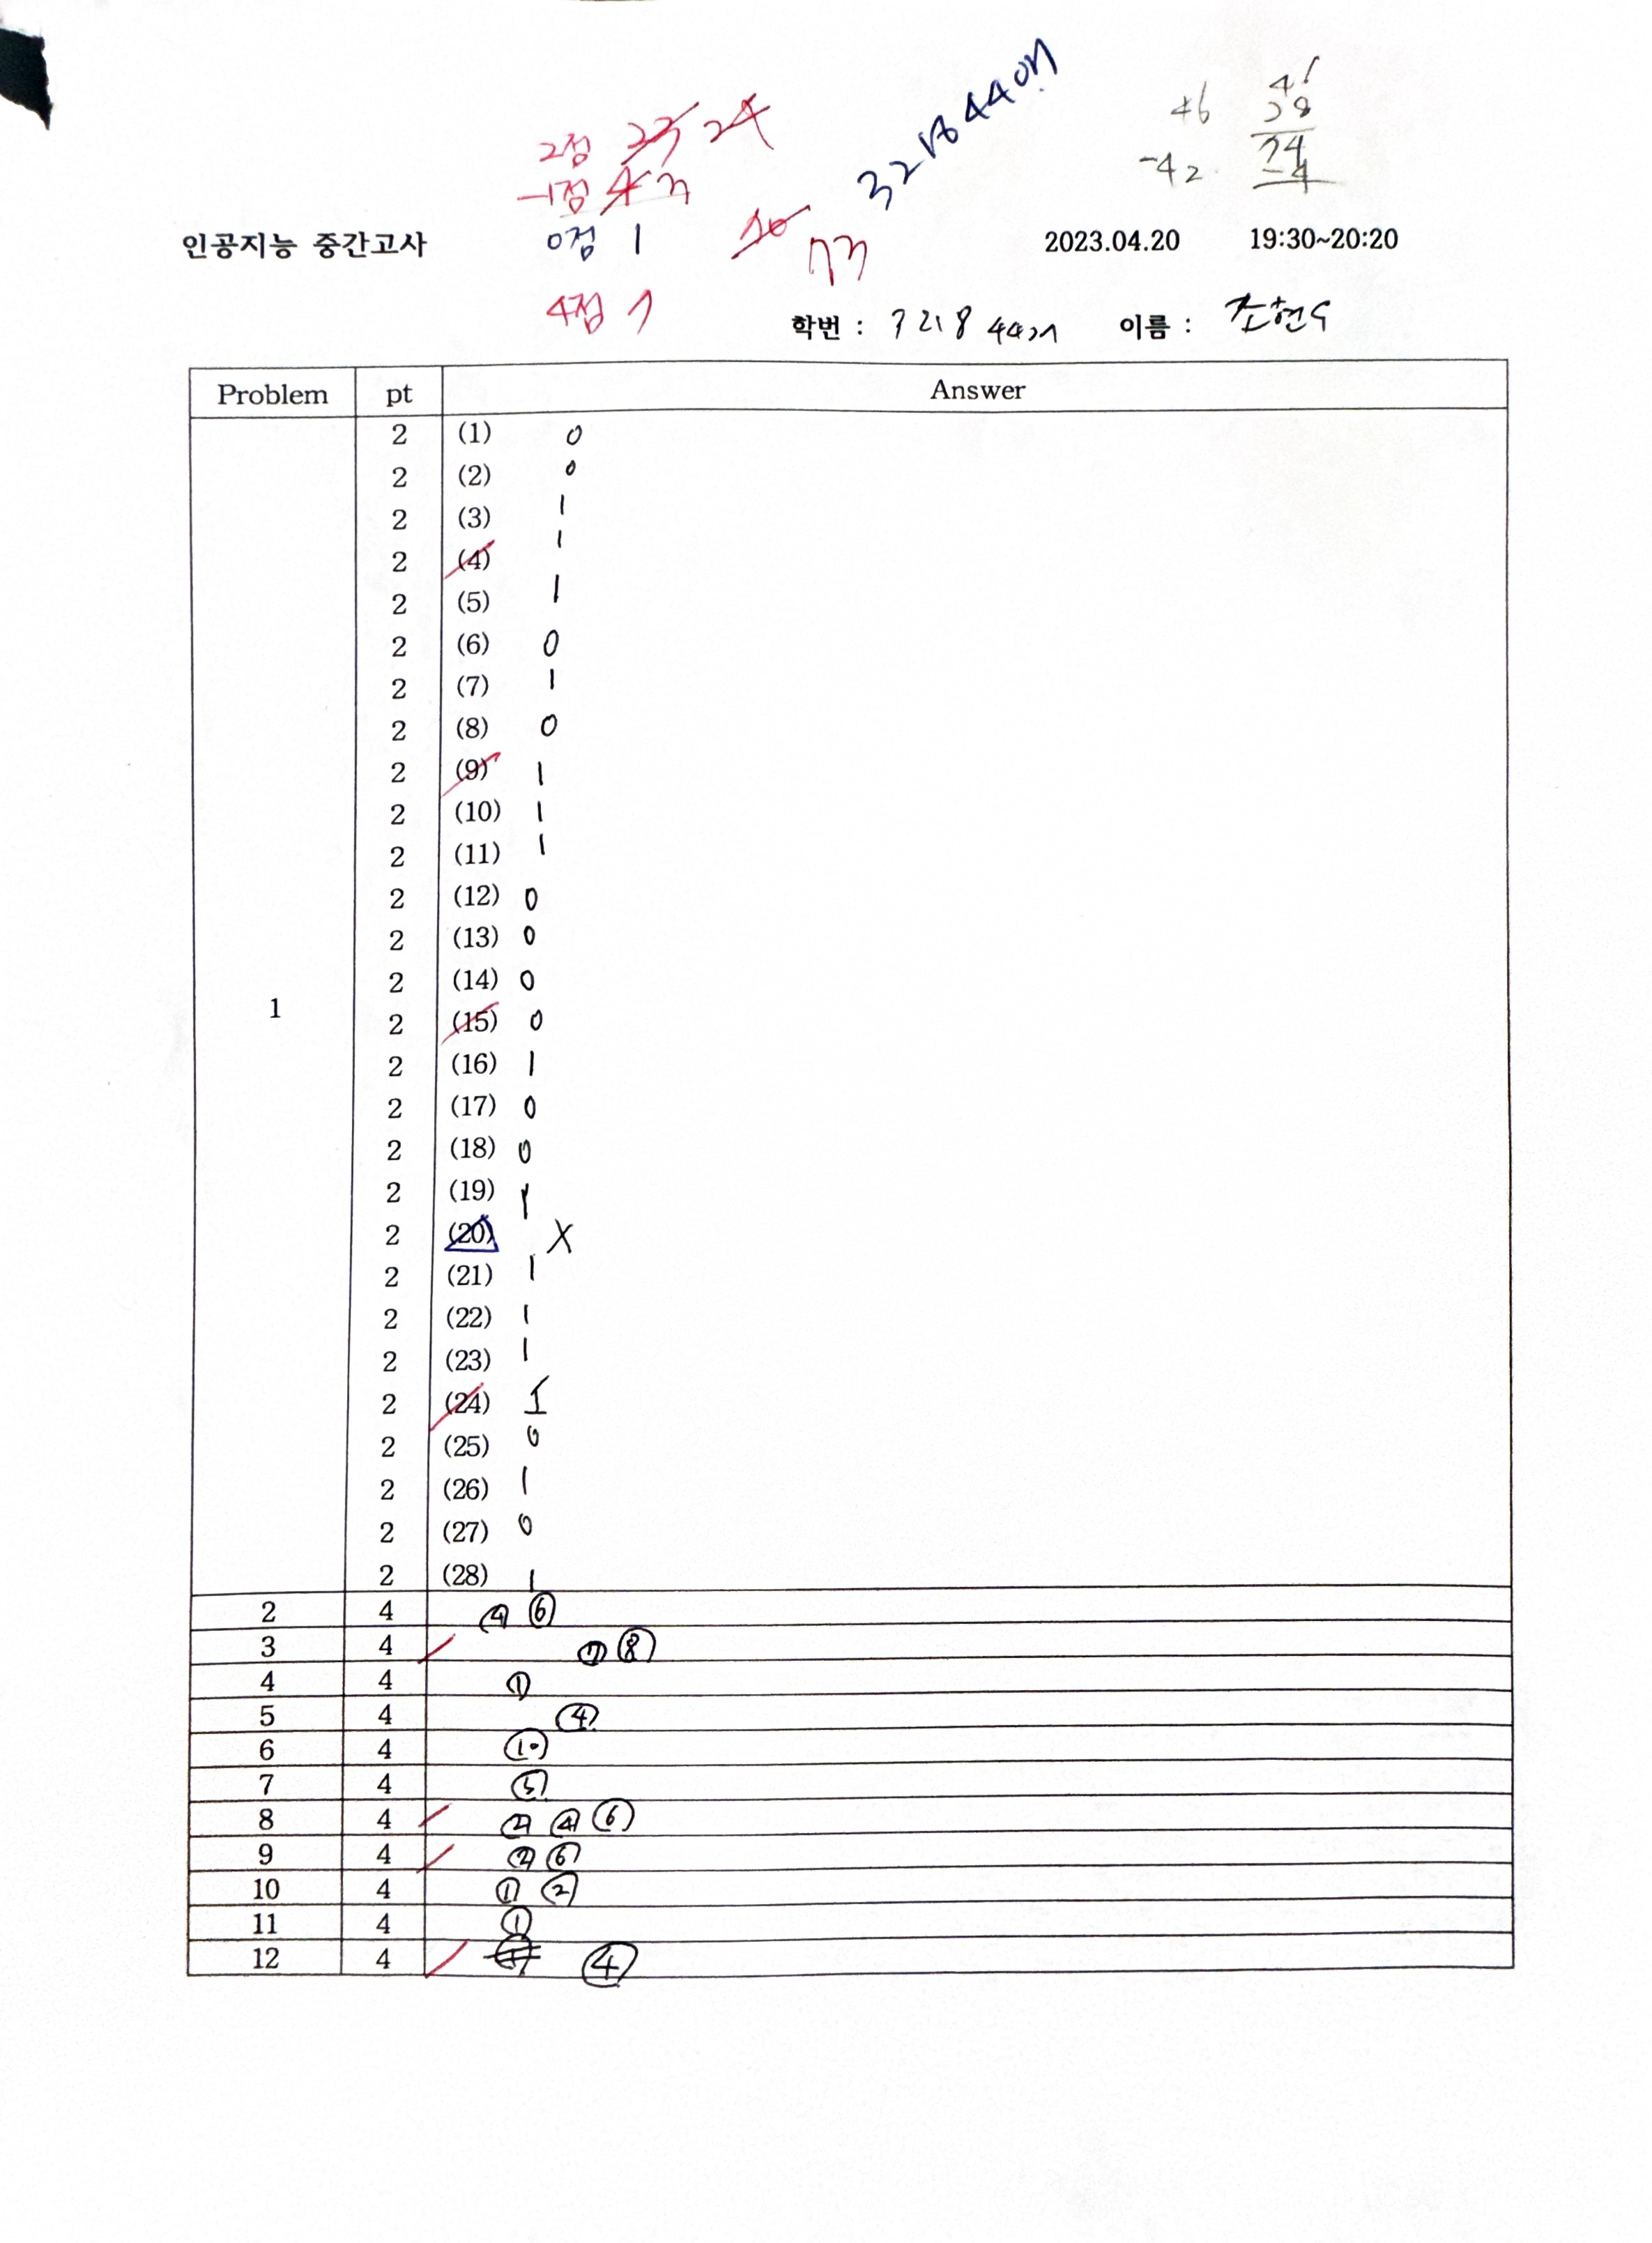 2점 23 24
-1점 4 3
0점 1
4점 7
73
46
-42
인공지능 중간고사
2023.04.20 19:30~20:20
학번 : 이름 :
Problem pt Answer
1
2 (1) 0
2 (2) 0
2 (3) 1
2 (4) 1
2 (5) 1
2 (6) 0
2 (7) 1
2 (8) 0
2 (9) 1
2 (10) 1
2 (11) 1
2 (12) 0
2 (13) 0
2 (14) 0
2 (15) 0
2 (16) 1
2 (17) 0
2 (18) 0
2 (19) 1
2 (20) X
2 (21) 1
2 (22) 1
2 (23) 1
2 (24) 1
2 (25) 0
2 (26) 1
2 (27) 0
2 (28) 1
2 4 ④ ⑥
3 4 ⑦ ⑧
4 4 ①
5 4 ④
6 4 ⑩
7 4 ⑤
8 4 ② ④ ⑥
9 4 ② ⑥
10 4 ① ②
11 4 ①
12 4 ④